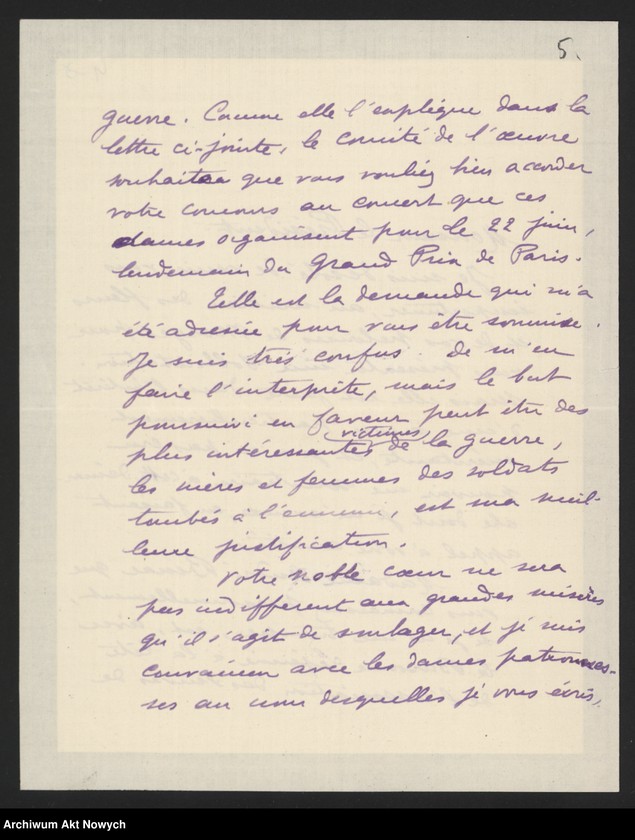 5.
guerre. Comme elle l'explique dans la
lettre ci-jointe, le Comité de l'œuvre
souhaitera que vous vouliez bien accorder
votre concours au concert que ces
dames organisent pour le 22 juin,
lendemain du Grand Prix de Paris.
Telle est la demande qui m'a
été adressée pour vous être soumise.
Je suis très confus de m'en
faire l'interprète, mais le but
poursuivi en faveur peut être des
plus intéressantes victimes de la guerre,
les mères et femmes des soldats
tombés à l'ennemi, est ma meil-
leure justification.
Votre noble cœur ne sera
pas indifférent aux grandes misères
qu'il s'agit de soulager, et je suis
convaincu avec les dames patronnes-
ses au nom desquelles je vous écris,
Archiwum Akt Nowych